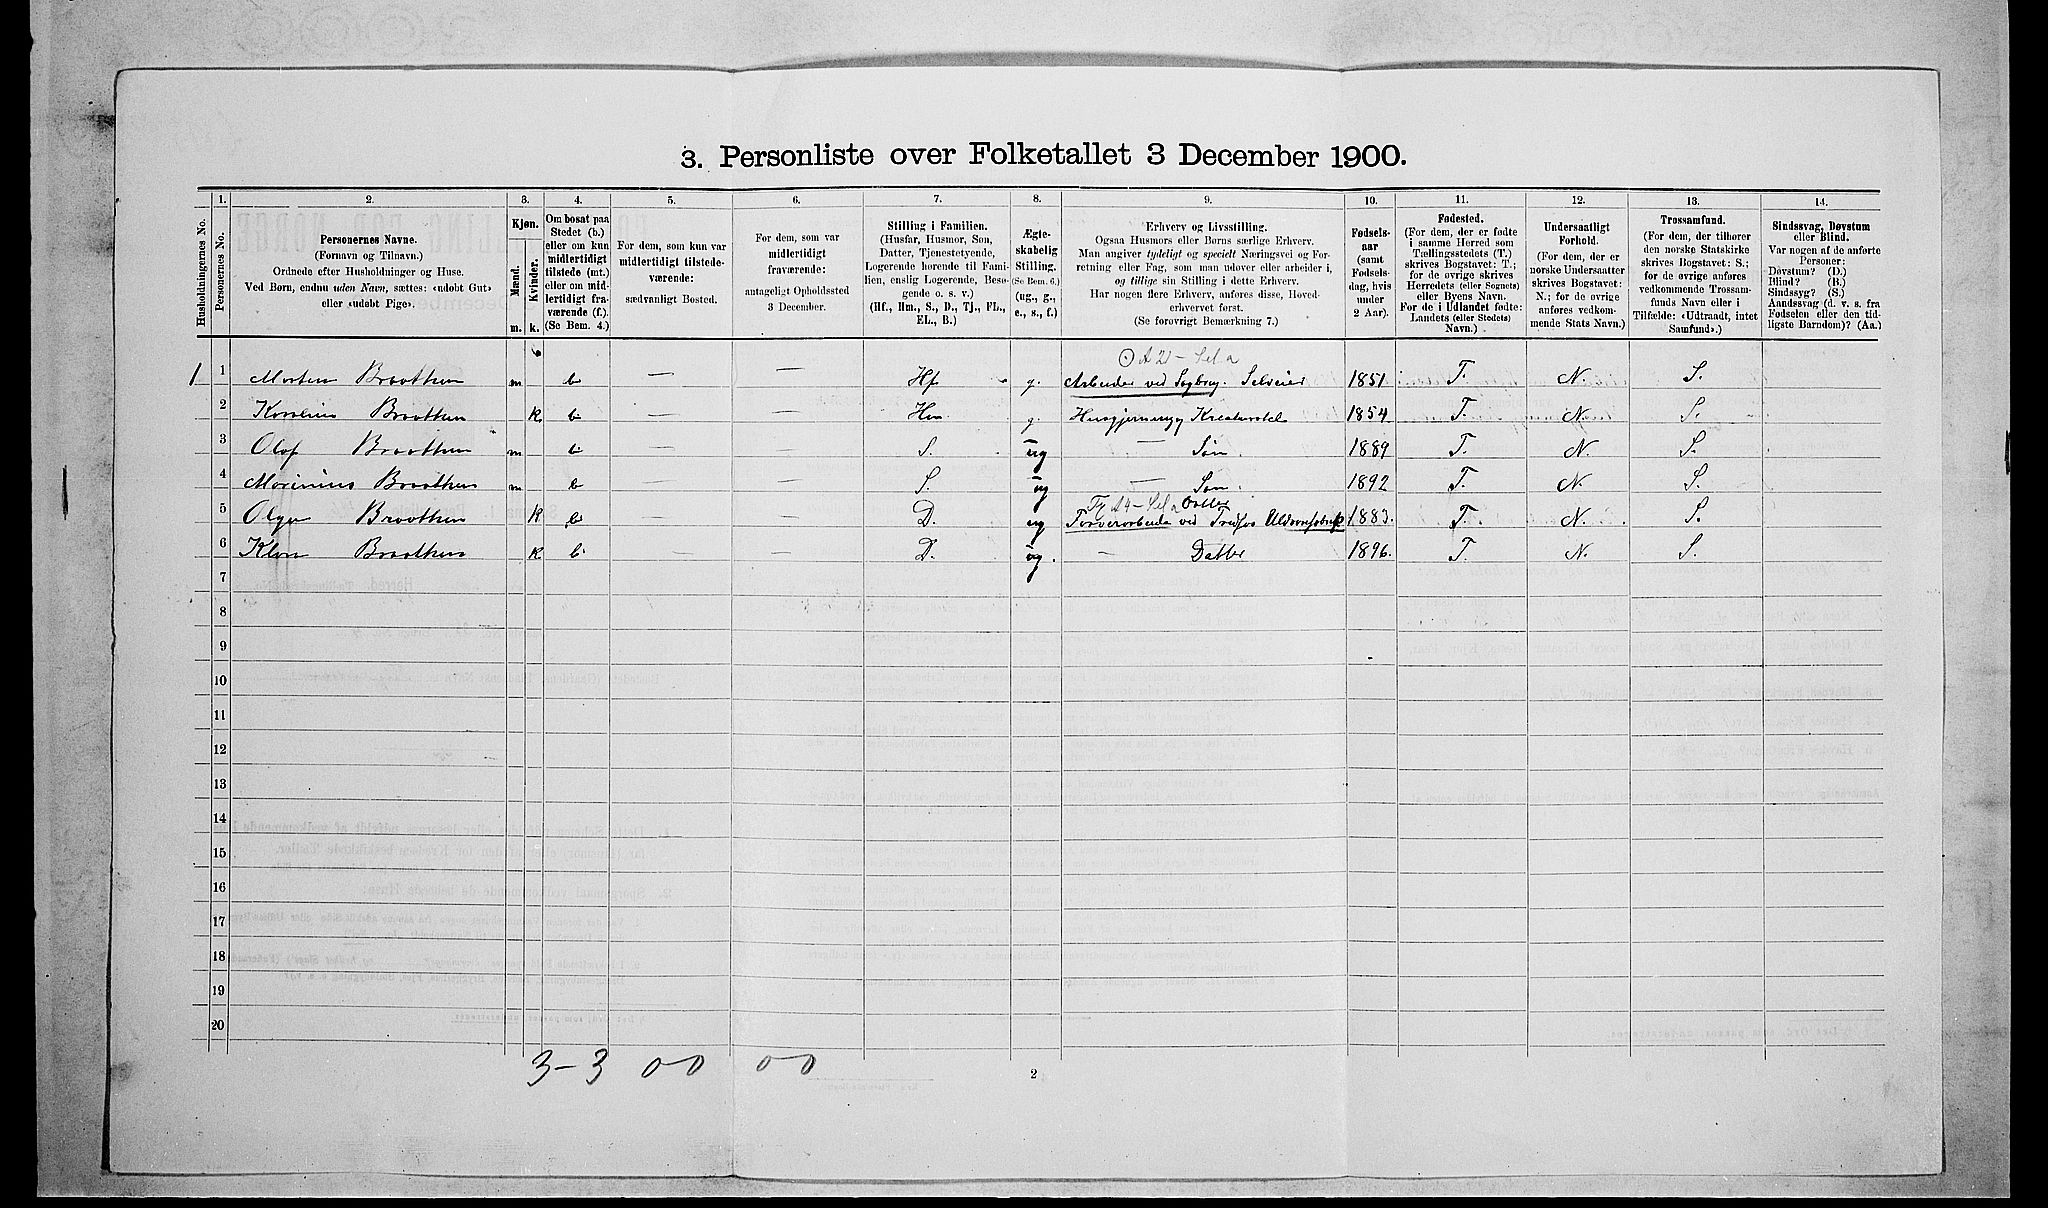 3. Personliste over Folketallet 3 December 1900.
1. 2. 3. 4. 5. 6. 7. 8. 9. 10. 11. 12. 13. 14.
Husholdningernes No.
Personernes No.
Personernes Navne.
(Fornavn og Tilnavn.)
Ordnede efter Husholdninger og Huse.
Ved Børn, endnu uden Navn, sættes: «udøbt Gut»
eller «udøbt Pige».
Kjøn.
Mænd.
Kvinder.
m. k.
Om bosat paa
Stedet (b.)
eller om kun
midlertidigt
tilstede (mt.)
eller om mid-
lertidigt fra-
værende (f.).
(Se Bem. 4.)
For dem, som kun var
midlertidigt tilstede-
værende:
sædvanligt Bosted.
For dem, som var
midlertidigt
fraværende:
antageligt Opholdssted
3 December.
Stilling i Familien.
(Husfar, Husmor, Søn,
Datter, Tjenestetyende,
Logerende hørende til Fami-
lien, enslig Logerende, Besø-
gende o. s. v.)
(Hf., Hm., S., D., Tj., FL.,
EL., B.)
Ægte-
skabelig
Stilling.
(Se Bem. 6.)
(ug., g.,
e., s., f.)
Erhverv og Livsstilling.
Ogsaa Husmors eller Børns særlige Erhverv.
Man angiver tydeligt og specielt Næringsvei og For-
retning eller Fag, som man udøver eller arbeider i,
og tillige sin Stilling i dette Erhverv.
Har nogen flere Erhverv, anføres disse, Hoved-
erhvervet først.
(Se forøvrigt Bemærkning 7.)
Fødsels-
aar
(samt
Fødsels-
dag, hvis
under
2 Aar).
Fødested.
(For dem, der er fødte
i samme Herred som
Tællingsstedets (T.)
skrives Bogstavet: T.;
for de øvrige skrives
Herredets (eller Sognets)
eller Byens Navn.
For de i Udlandet fødte:
Landets (eller Stedets)
Navn.)
Undersaatligt
Forhold.
(For dem, der er
norske Undersaatter
skrives Bogstavet:
N.; for de øvrige
anføres vedkom-
mende Stats Navn.)
Trossamfund.
(For dem, der tilhører
den norske Statskirke
skrives Bogstavet: S.;
for de øvrige anføres
vedkommende Trossam-
funds Navn eller i
Tilfælde: «Udtraadt, intet
Samfund».)
Sindssvag, Døvstum
eller Blind.
Var nogen af de anførte
Personer:
Døvstum? (D.)
Blind? (B.)
Sindssyg? (S.)
Aandssvag (d. v. s. fra
Fødselen eller den tid-
ligste Barndom)? (Aa.)
A 21 - Sel. a
1 1 Morten Braathen m b — — Hf g. Arbeider ved Sagbrug. Selveier 1851 T. N. S.
2 Braathen k b — — Hm g. Husgjerning og Kreaturstel 1854 T. N. S.
3 Olaf Braathen m b — — S. ug — Søn. 1889 T. N. S.
4 Marinius Braathen m b — — S. ug — Søn. 1892 T. N. S.
Datter
5 Olga Braathen k b — — D. ug ved 1883. T. N. S.
6 Klara Braathen k b — — D. ug. — Datter 1896. T. N. S.
7
8
9
10
11
12
13
14
15
16
17
18
19
20
3 - 3 0 0 0 0
2